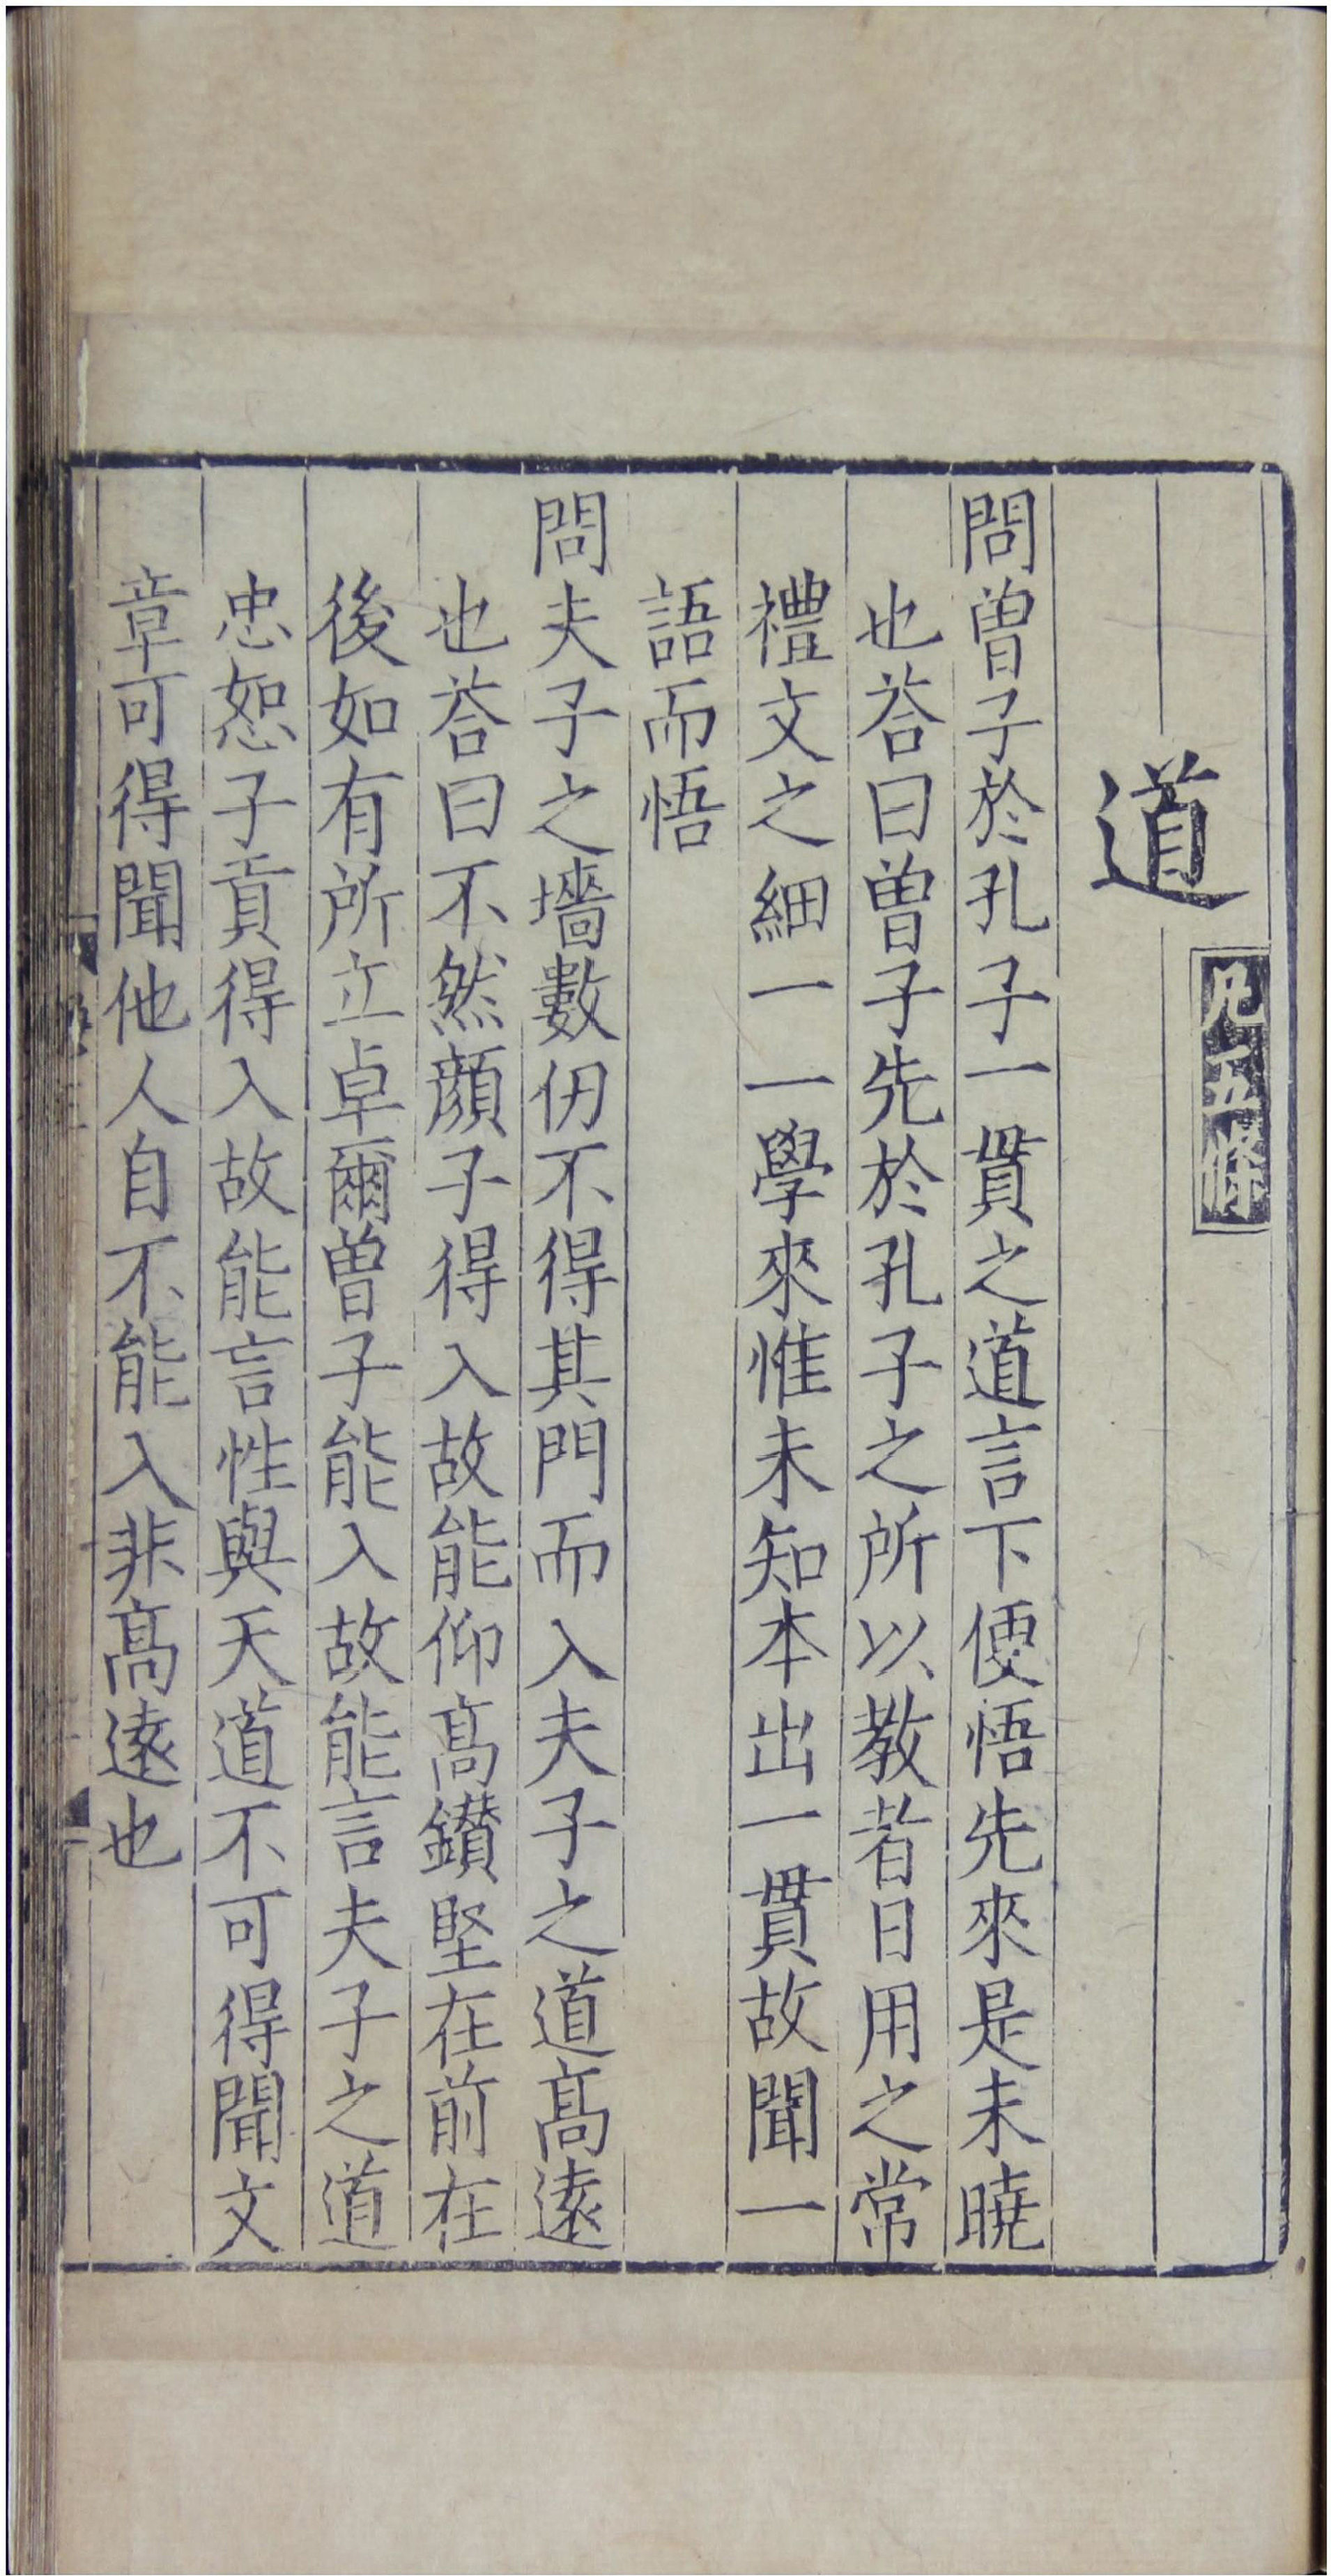 道
凡五條
問曾子於孔子一貫之道言下便悟先來是未曉
也荅曰曾子先於孔子之所以教者日用之常
禮文之細一一一學來惟未知本出一貫故聞一
語而悟
問夫子之墻數仞不得其門而入夫子之道髙遠
也荅曰不然顔子得入故能仰髙鑚堅在前在
後如有所立卓爾曾子能入故能言夫子之道
忠恕子貢得入故能言性與天道不可得聞文
章可得聞他人自不能入非髙遠也